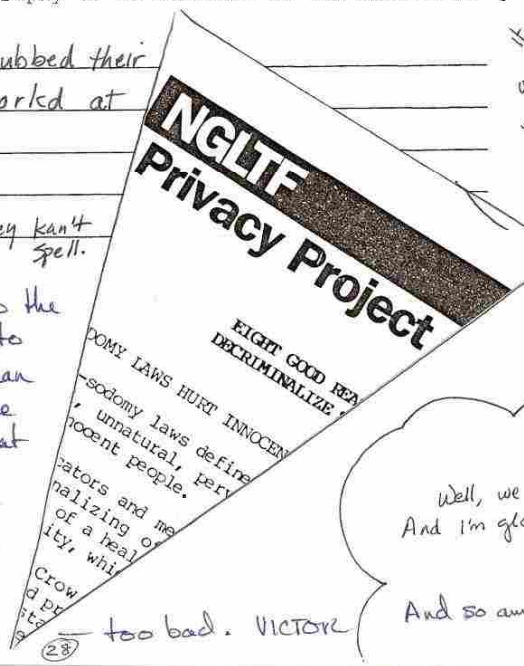 ubbed their
orkd at
ey kan't
spell.
o the
to
an
e
at
NGLTF
Privacy Project
EIGHT GOOD REA
DECRIMINALIZE
DOMY LAWS HURT INNOCEN
-sodomy laws define
, unnatural, perv
nocent people.
cators and me
nalizing o
of a heal
ity, whi
Crow
d pr
sta
Well, we
And I'm gla
And so am
— too bad. VICTOR
28